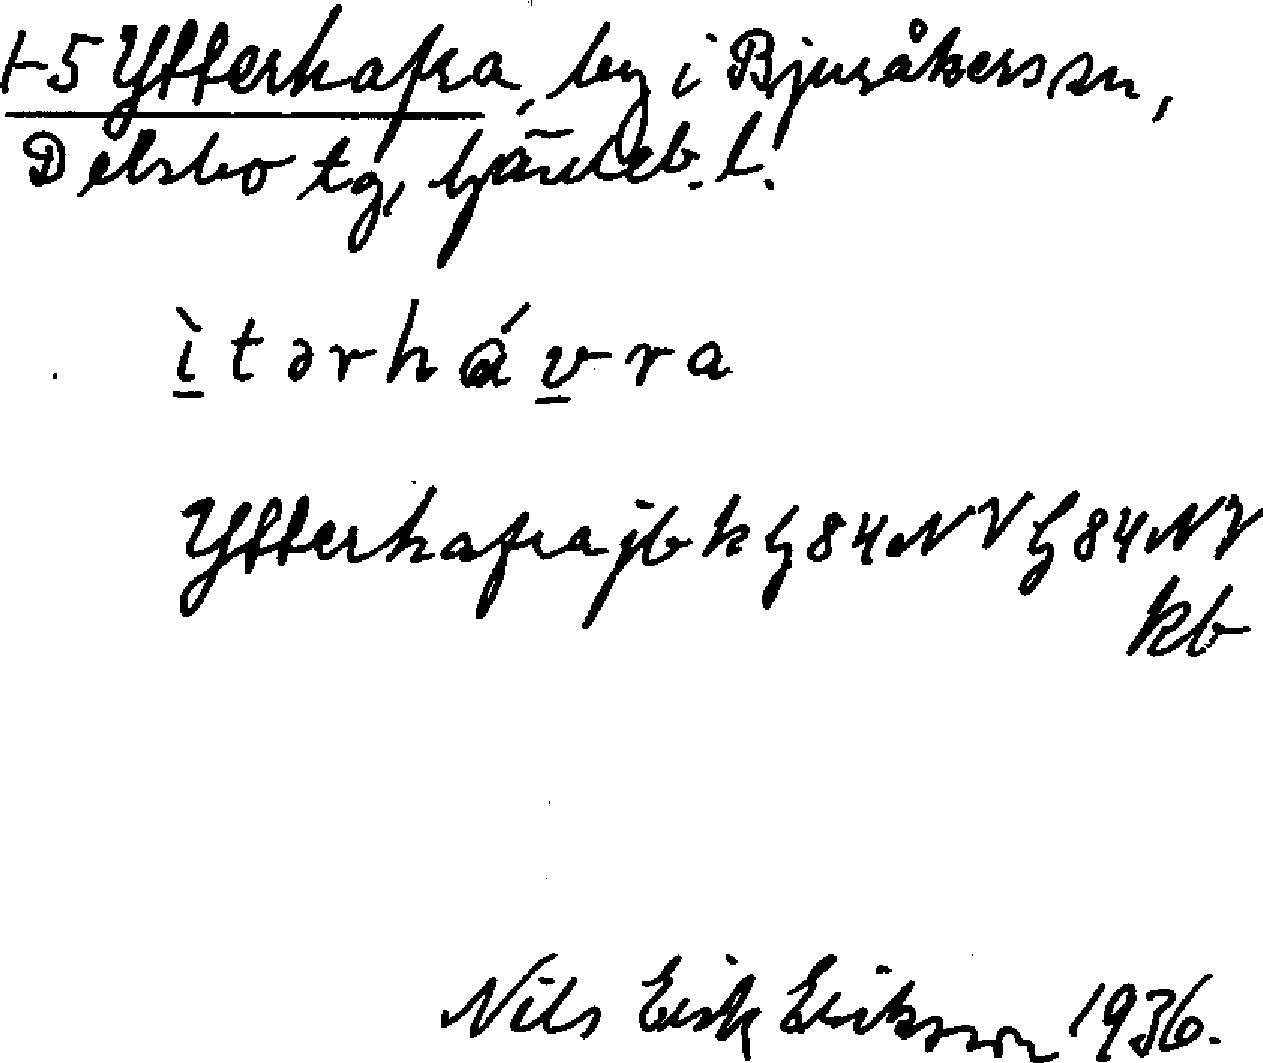 1-5 Ytterhafra, by i Bjuråkers sn,
Delsbo tg, Gävleb. l.
ìtərhávra
Ytterhafra jb k G 84 NV G 84 NV
kb
Nils Erik Eriksson 1936.